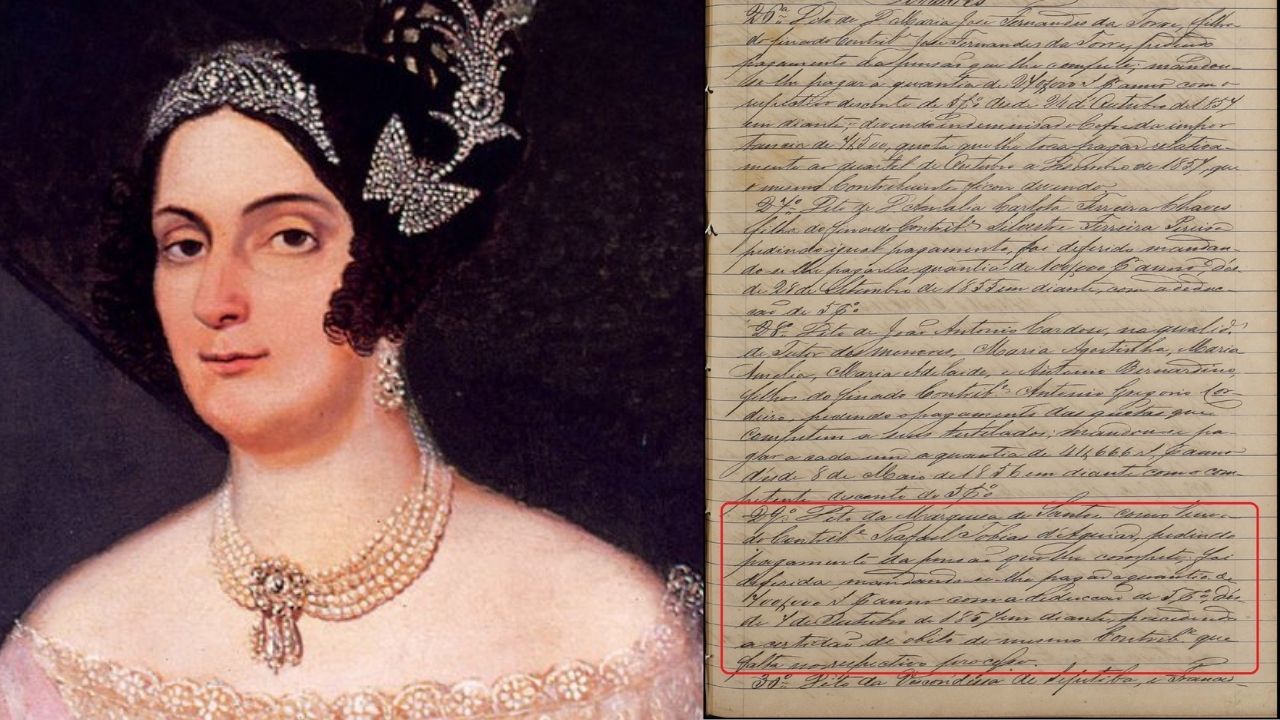 26ª Dito de D. Maria José Fernandes da Torre, filha
do finado Contribe José Fernandes da Torre, pedindo
pagamento da pensão que lhe compete; mandou-
se lhe pagar a quantia de 240,000 rs p anno com o
respectivo desconto de 5 p% desde 21 de Outubro de 1857
em diante; devendo indemnisar o Cofre da impor
tancia de 7,500, quota que lhe toca pagar relativa-
mente ao quartel de Outubro a Dezembro de 1857, que
o mesmo Contribuinte ficou devendo.
27ª Dito de D. Amalia Carlota Ferreira Chaves
filha do finado Contribe Silvestre Ferreira
pedindo igual pagamento, foi deferido mandan-
do se lhe pagar a quantia de 100,000 p anno, des-
de 28 de Setembro de 1855 em diante, com a deduc-
cão de 5 p%
28ª Dito de João Antonio Cardoso, na qualide
de Tutor dos menores, Maria Agostinha, Maria
Amelia, Maria Adelaide, e Antonio Bernardino,
filhos do finado Contribe Antonio Gregorio
pedindo o pagamento das quotas que
competem a seus tutelados; mandou-se pa-
gar a cada um a quantia de 41,666 rs p anno
desde 8 de Maio de 1856 em diante como com-
petente desconto de 5 p%
29ª Dito da Marquesa de Santos, como
do Contribe Rafael Tobias d'Aguiar, pedindo
pagamento da pensão que lhe compete, foi
deferida mandando se-lhe pagar a quantia de
400,000 rs p anno com a deducção de 5 p%, des-
de 7 de Outubro de 1857 em diante,
a certidão de obito do mesmo Contribe que
falta no respectivo processo.
30ª Dito da Viscondessa de Sepetiba, e Francis-